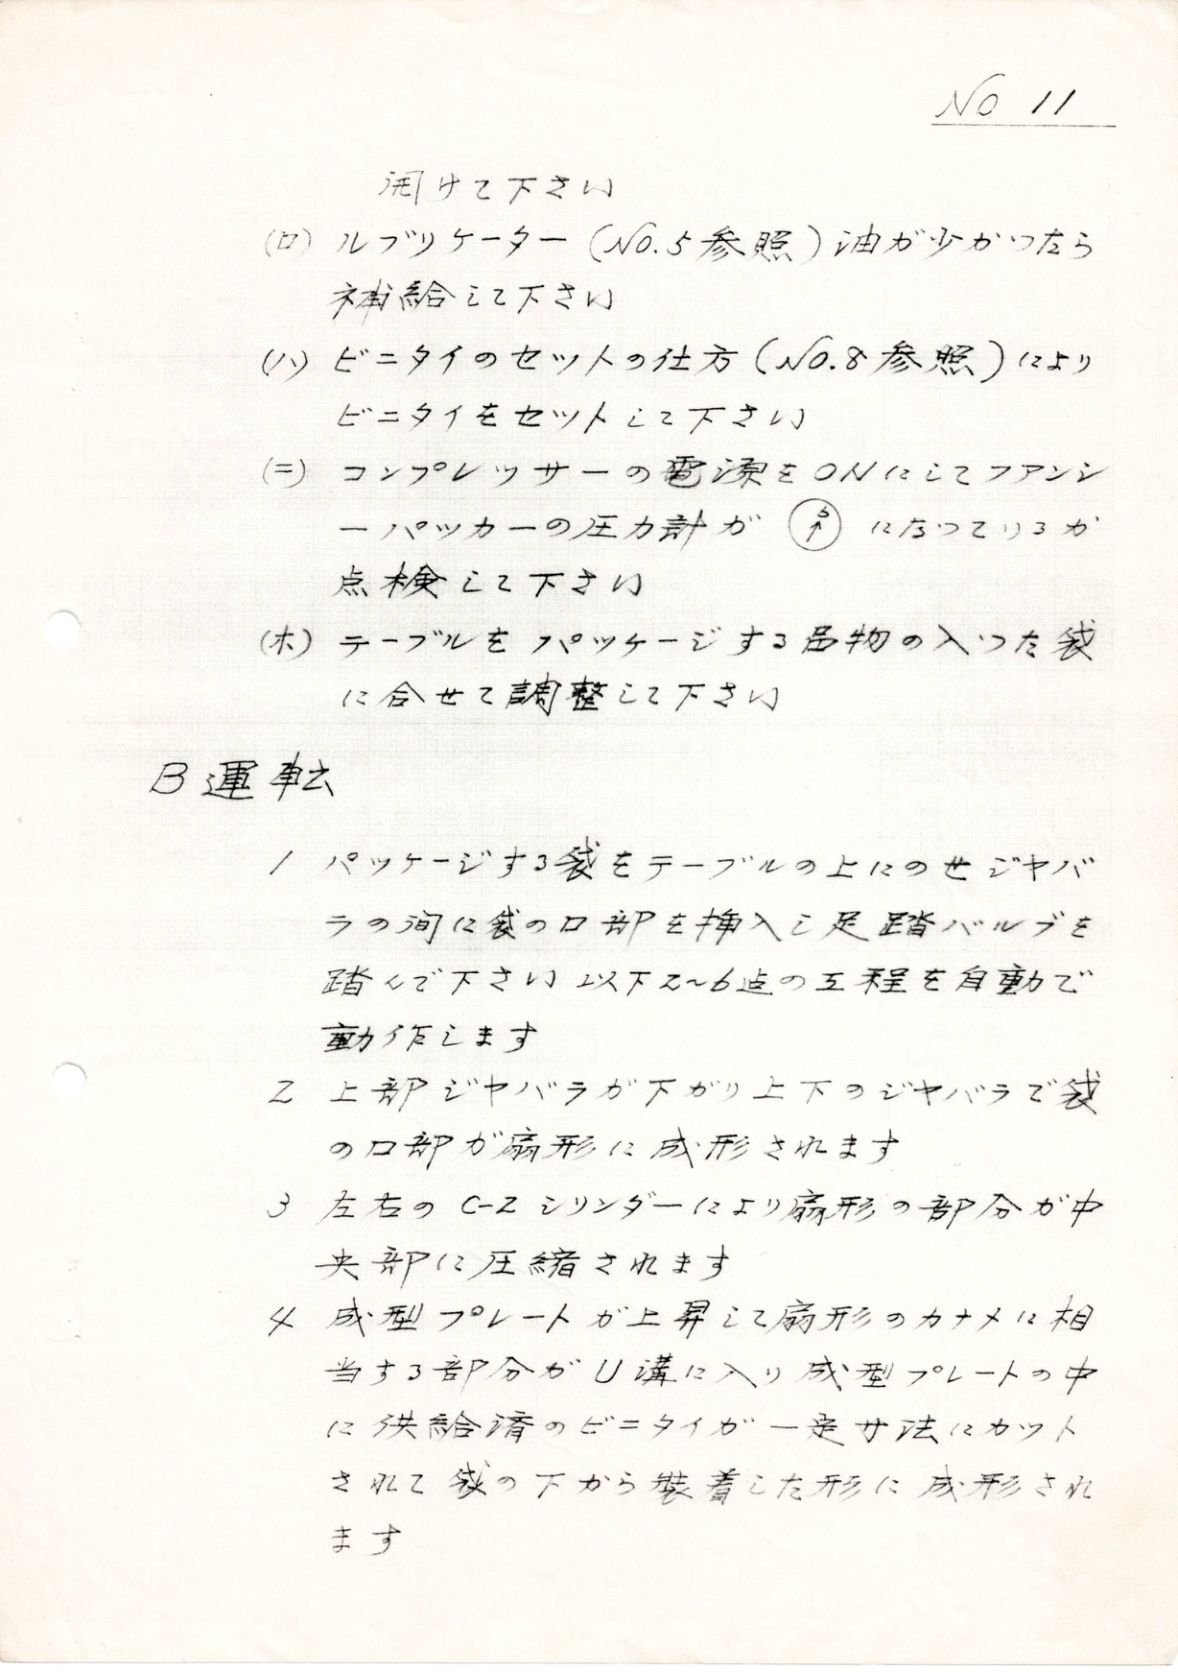 No 11
開けて下さい
(ロ) ルブリケーター(No.5参照)油が少かつたら
補給して下さい
(ハ) ビニタイのセットの仕方(No.8参照)により
ビニタイをセットして下さい
(ニ) コンプレッサーの電源をONにしてフアンシ
ーパッカーの圧力計が 5↑ になつているか
点検して下さい
(ホ) テーブルをパッケージする品物の入つた袋
に合せて調整して下さい
B 運転
1 パッケージする袋をテーブルの上にのせジヤバ
ラの间に袋の口部を挿入し足踏バルブを
踏んで下さい 以下2~6迄の工程を自動で
動作します
2 上部ジヤバラが下がり上下のジヤバラで袋
の口部が扇形に成形されます
3 左右のC-2シリンダーにより扇形の部分が中
央部に圧縮されます
4 成型プレートが上昇して扇形のカナメに相
当する部分がU溝に入り成型プレートの中
に供給済のビニタイが一定寸法にカット
されて袋の下から装着した形に成形され
ます